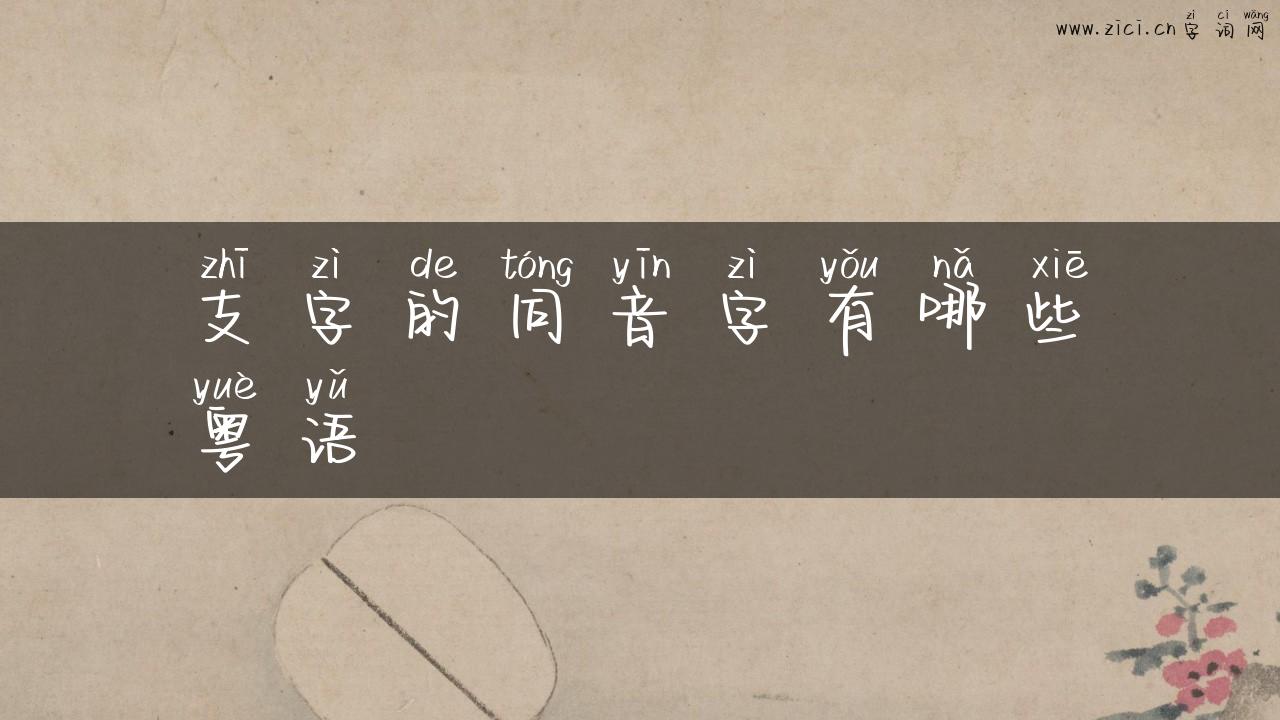 zì cí wǎng
www.zici.cn 字词网
zhī zì de tóng yīn zì yǒu nǎ xiē
支字的同音字有哪些
yuè yǔ
粤语